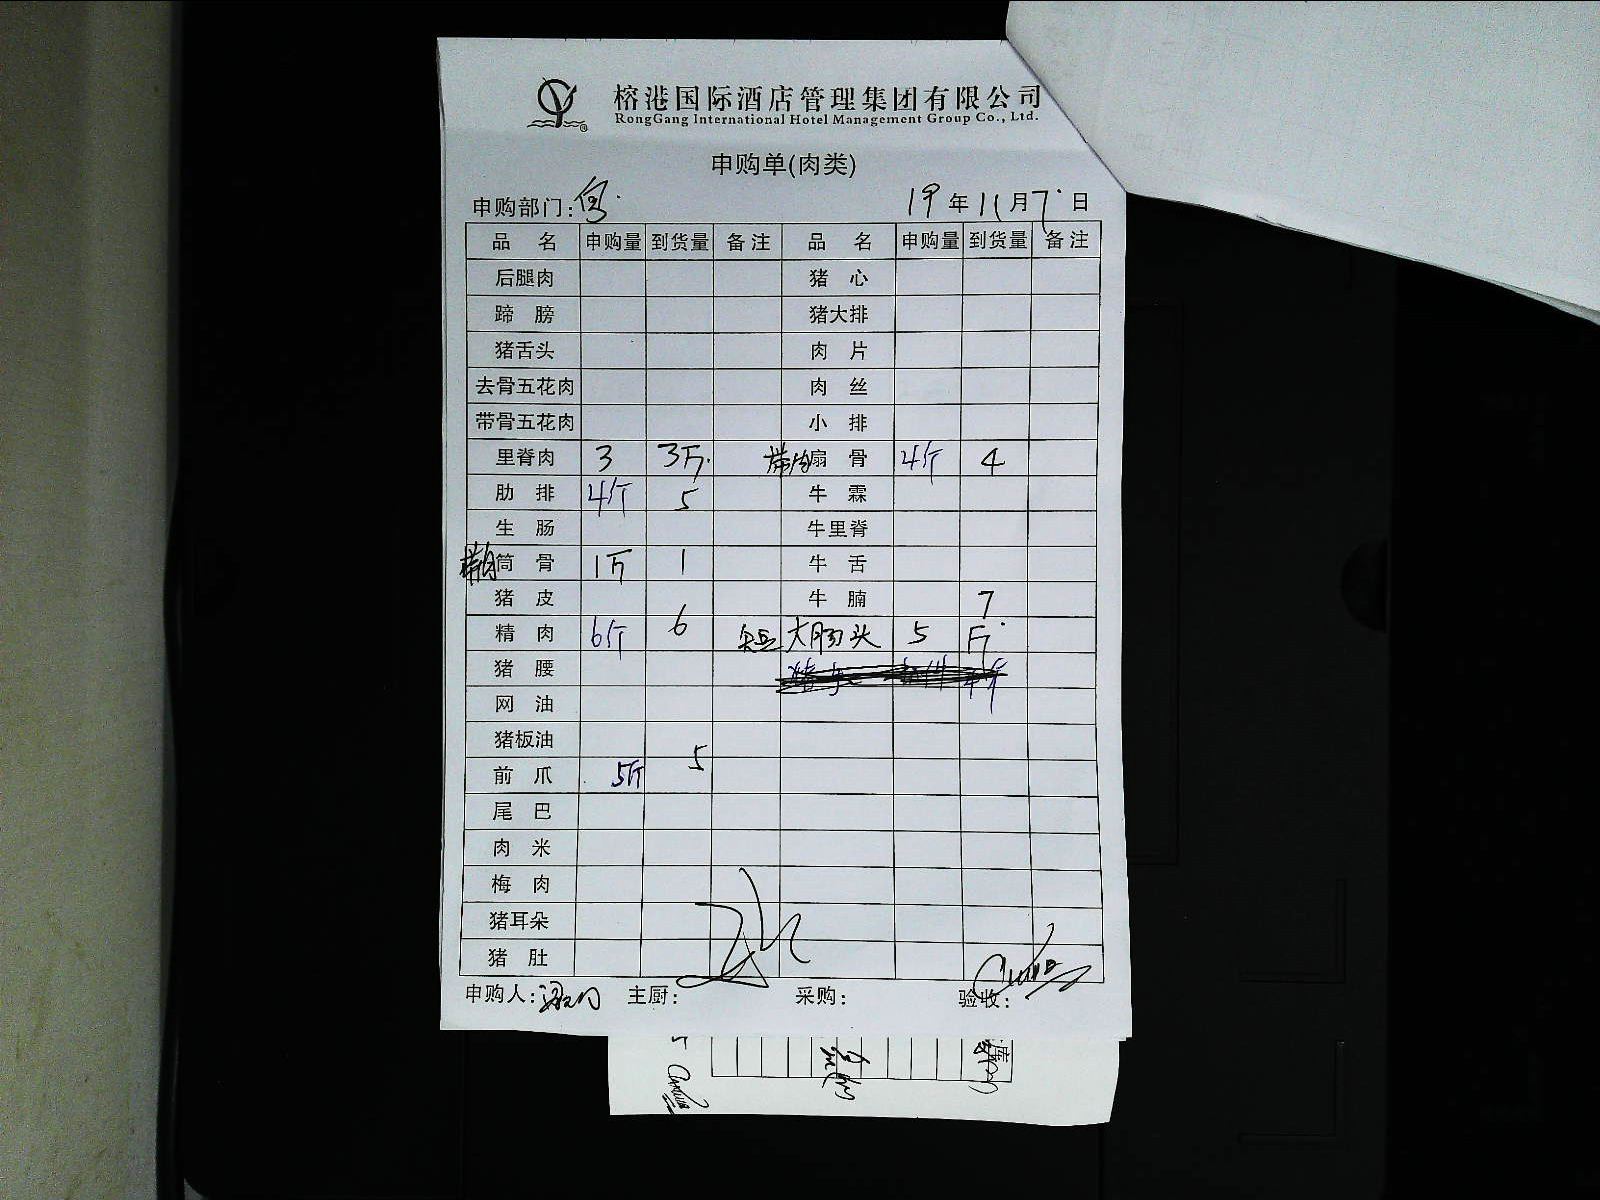 榕港国际酒店管理集团有限公司
RongGang International Hotel Management Group Co., Ltd.
申购单(肉类)
申购部门: 19年11月7日
品 名 申购量 到货量 备注 品 名 申购量 到货量 备注
后腿肉 猪 心
蹄 膀 猪大排
猪舌头 肉 片
去骨五花肉 肉 丝
带骨五花肉 小 排
里脊肉 3 3斤 带肉扇 骨 4斤 4
肋 排 4斤 5 牛 霖
生 肠 牛里脊
带肉筒 骨 1斤 1 牛 舌
猪 皮 牛 腩 7
精 肉 6斤 6 大肠头 5 斤
猪 腰
网 油
猪板油
前 爪 5斤 5
尾 巴
肉 米
梅 肉
猪耳朵
猪 肚
申购人: 主厨: 采购: 验收: